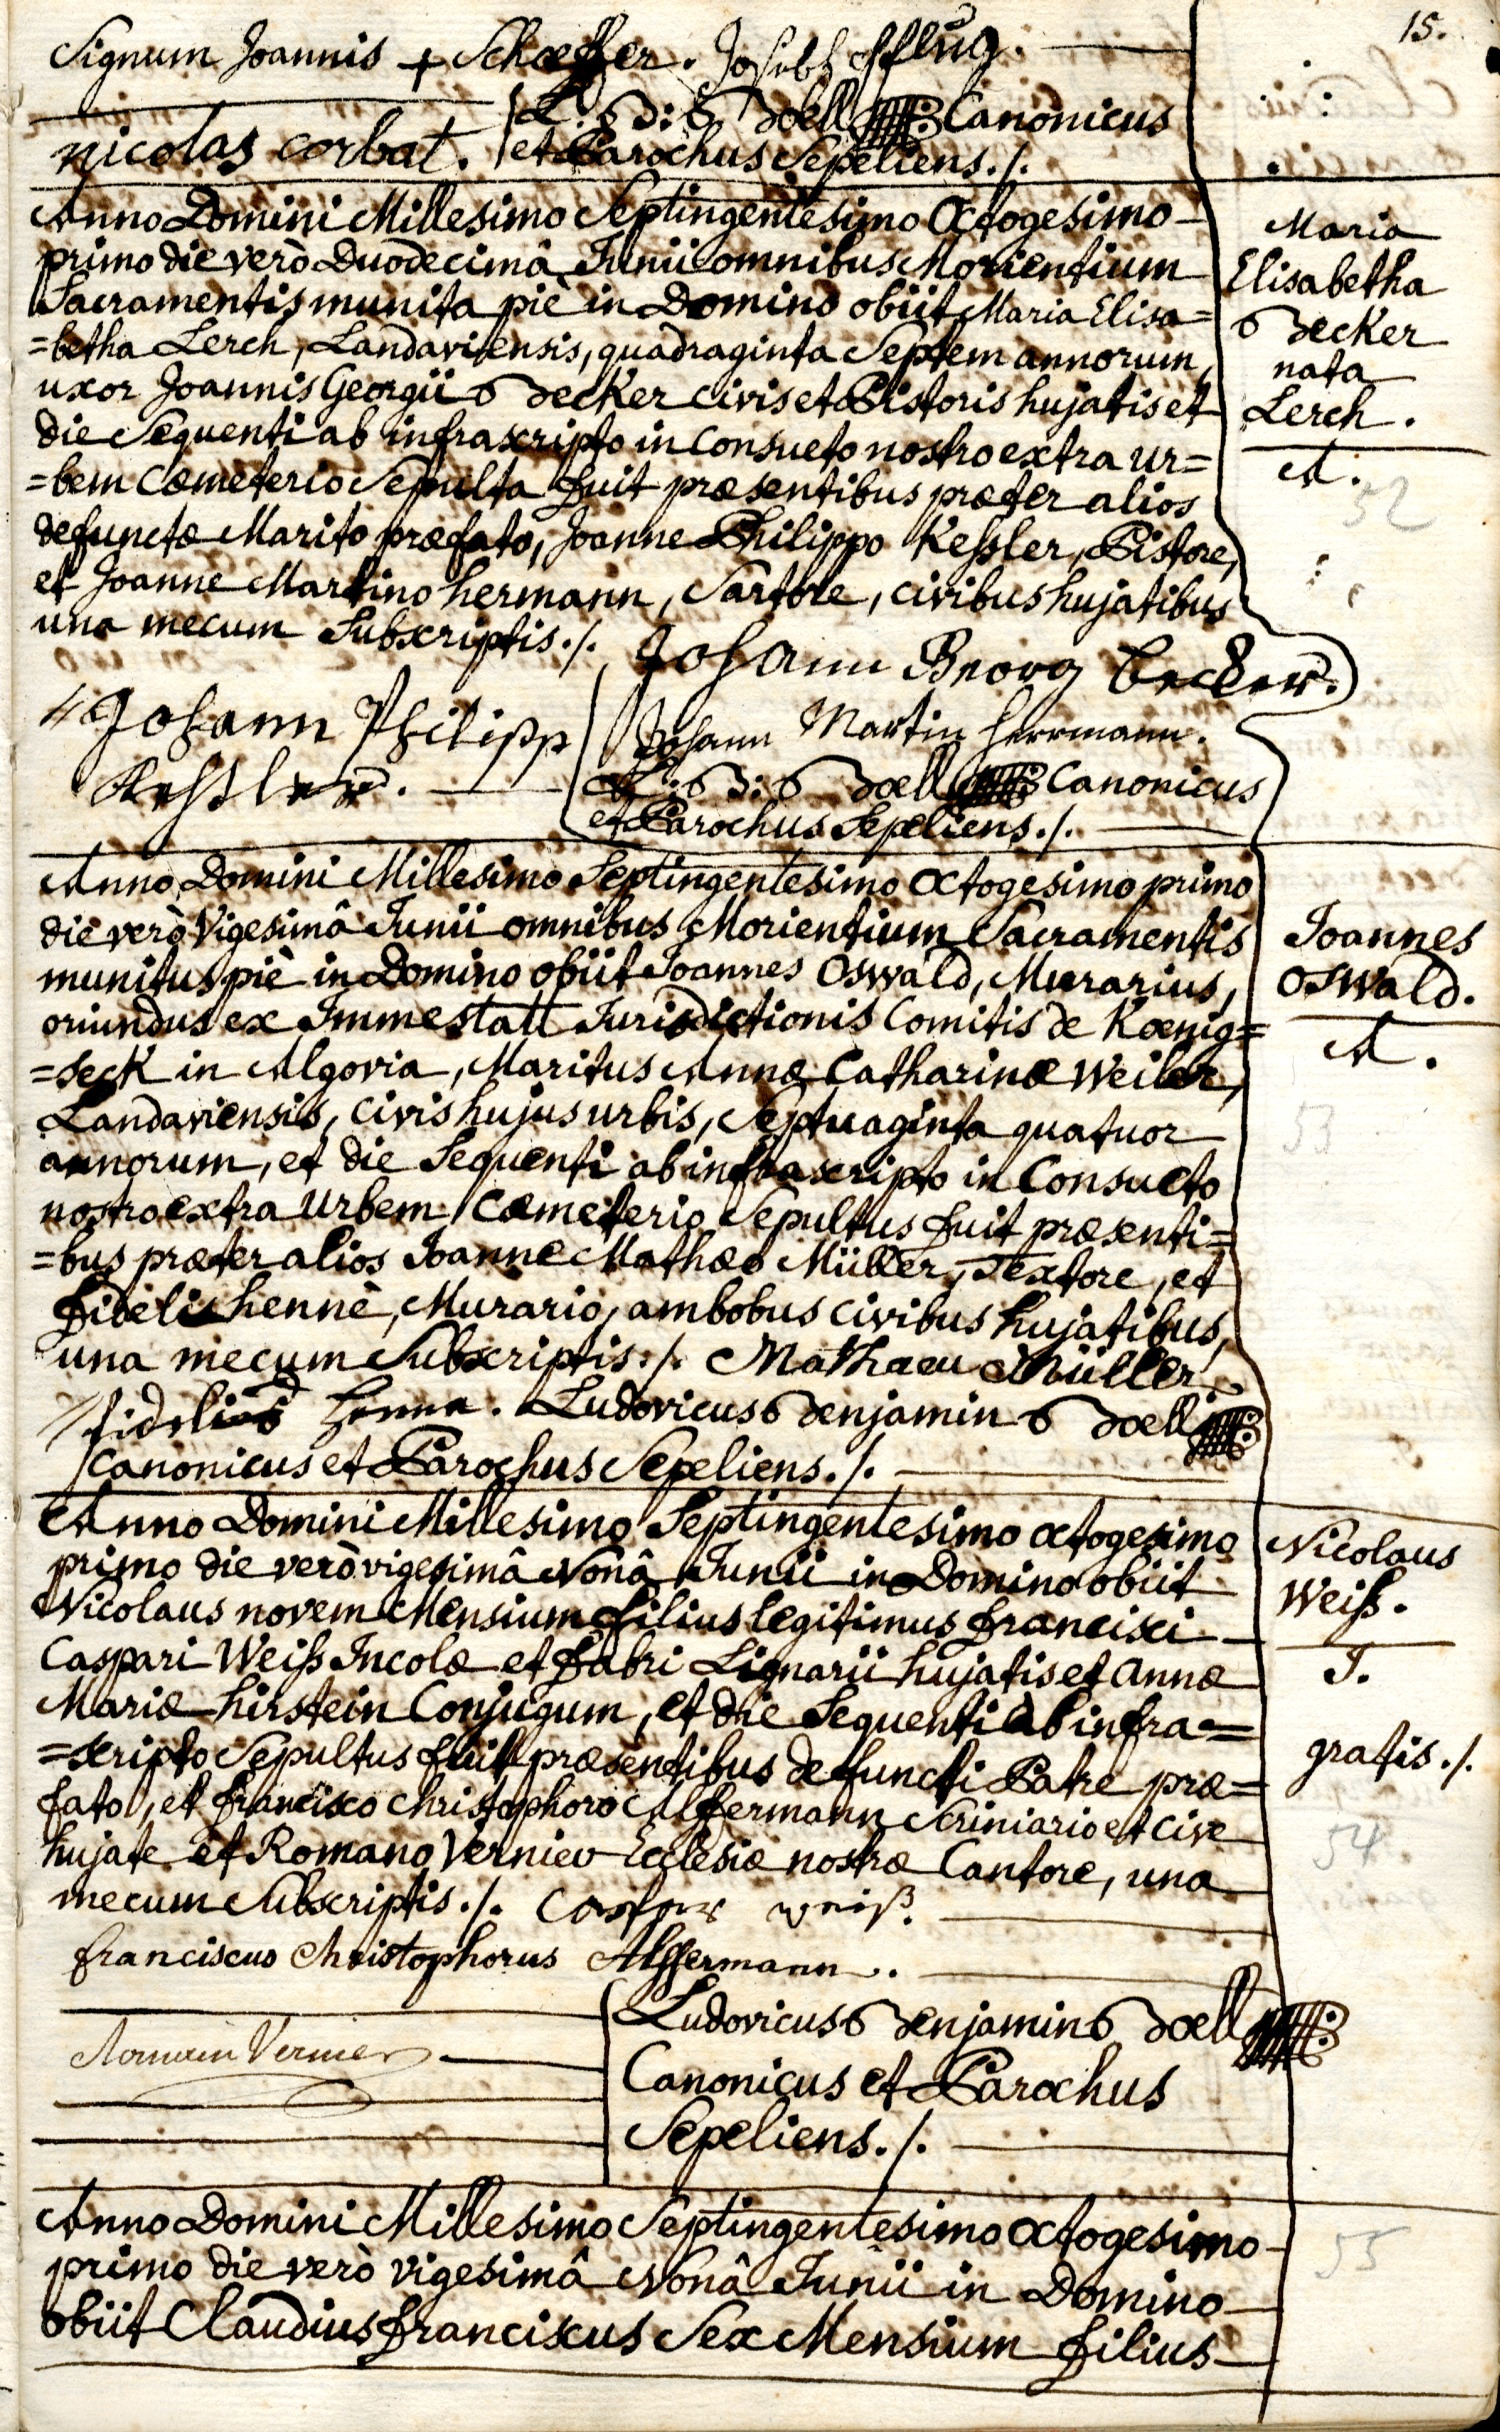 15.
Signum Joannis + Schæffer. Joseph Pflug.
nicolas corbat.
L: B: Boell Canonicus
et Parochus Sepeliens ./.
Anno Domini Millesimo Septingentesimo Octogesimo
primo die verò Duodecimâ Junii omnibus Morientium
Sacramentis munita piè in Domino obiit Maria Elisa=
=betha Lerch, Landaviensis, quadraginta Septem annorum,
uxor Joannis Georgii Becker civis et Pistoris hujatis et
die Sequenti ab infrascripto in Consueto nostro extra ur=
=bem Cœmeterio Sepulta fuit præsentibus præter alios
defunctæ Marito præfato, Joanne Philippo Kessler, Pistore,
et Joanne Martino hermann, Sartore, civibus hujatibus
una mecum Subscriptis ./.
Maria
Elisabetha
Becker
nata
Lerch.
A.
52
Johann Georg Becker.
Johann Philipp
Kessler.
Johann Martin Herrmann.
L: B: Boell Canonicus
et Parochus Sepeliens ./.
Anno Domini Millesimo Septingentesimo Octogesimo primo
die verò Vigesimâ Junii omnibus Morientium Sacramentis
munitus piè in Domino obiit Joannes Oswald, Murarius,
oriundus ex Immestatt Jurisdictionis Comitis de Kœnig=
=seck in Algovia, Maritus Annæ Catharinæ Weiler,
Landaviensis, civis hujus urbis, Septuaginta quatuor
annorum, et die Sequenti ab infrascripto in Consueto
nostro extra Urbem Cœmeterio Sepultus fuit præsenti=
=bus præter alios Joanne Mathæo Müller, Textore, et
fideli henne, Murario, ambobus civibus hujatibus,
una mecum Subscriptis ./. Mathaeu Müller
fidelis henna. Ludovicus Benjamin Boell
Canonicus et Parochus Sepeliens ./.
Joannes
Oswald.
A.
53
Anno Domini Millesimo Septingentesimo octogesimo
primo die verò vigesimâ Nonâ Junii in Domino obiit
Nicolaus novem Mensium filius legitimus francisci
Caspari Weiß Incolæ et fabri Lignarii hujatis et annæ
Mariæ hirstein Conjugum, et die Sequenti ab infra=
=scripto Sepultus fuit præsentibus defuncti Patre præ=
fato, et francisco christophoro Alffermann Scriniario et cive
hujate et Romano Vernier Ecclesiæ nostræ Cantore, una
mecum Subscriptis ./. Casper weiß.
franciscus Christophorus Alffermann.
Romain Vernier
Ludovicus Benjamin Boell
Canonicus et Parochus
Sepeliens ./.
Nicolaus
Weiß.
I.
gratis ./.
54
Anno Domini Millesimo Septingentesimo octogesimo
primo die verò vigesimâ Nonâ Junii in Domino
obiit Claudius franciscus Sex Mensium filius
55